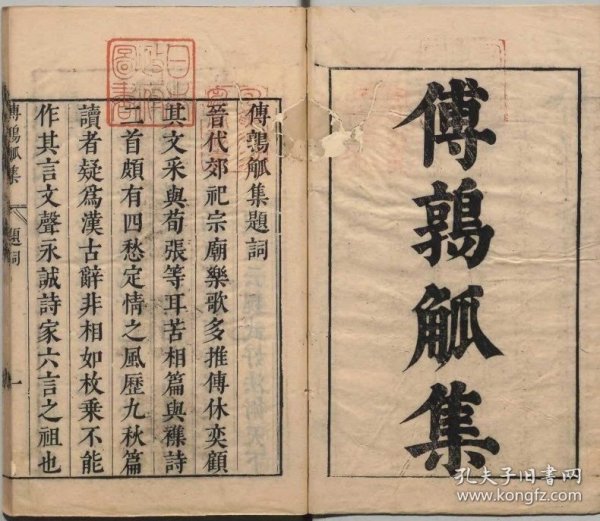 傅鶉觚集
傅鶉觚集題詞
晉代郊祀宗廟樂歌多推傅休奕顧
其文采與荀張等耳苦相篇與襍詩
二首頗有四愁定情之風歷九秋篇
讀者疑爲漢古辭非相如枚乗不能
作其言文聲永誠詩家六言之祖也
傅鶉觚集
題詞
一
孔夫子旧书网
www.kongfz.com